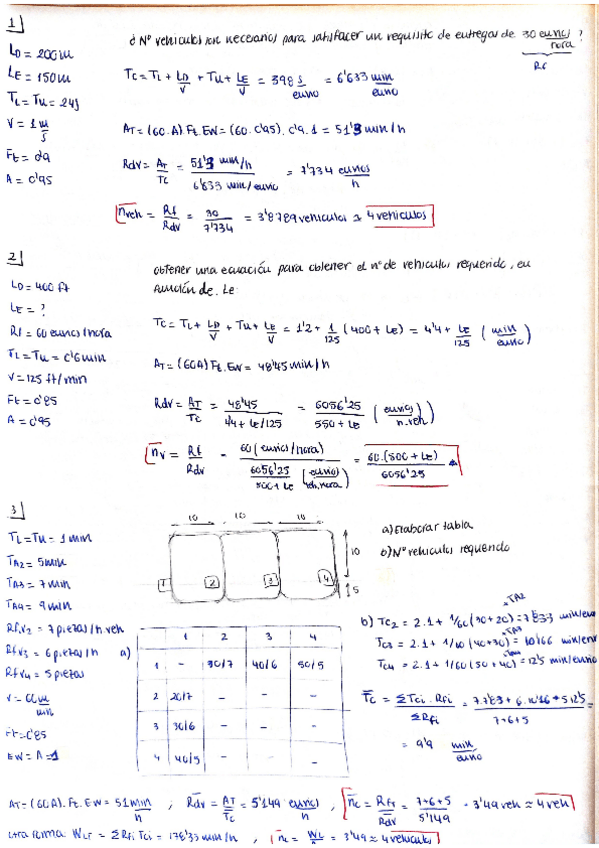 1
¿Nº vehiculos son necesarios para satisfacer un requisito de entregas de 30 envios/hora?
Rf
LD = 200m
LE = 150m
TL = Tu = 24s
V = 1 m/s
Ft = 0'9
A = 0'95
Tc = TL + LD/V + Tu + LE/V = 398 s/envio = 6'633 min/envio
AT = (60·A) Ft. EW = (60·0'95)·0'9·1 = 51'3 min/h
Rdv = AT/Tc = 51'3 min/h / 6'633 min/envio = 7'734 envios/h
nveh = Rf/Rdv = 30/7'734 = 3'8789 vehiculos ≃ 4 vehiculos
2
obtener una ecuación para obtener el nº de vehiculos requerido, en
función de Le
LD = 400 ft
LE = ?
Rf = 60 envios/hora
TL = Tu = 0'6 min
V = 125 ft/min
Ft = 0'85
A = 0'95
Tc = TL + LD/V + Tu + LE/V = 1'2 + 1/125 (400 + LE) = 4'4 + LE/125 (min/envio)
AT = (60A) Ft. EW = 48'45 min/h
Rdv = AT/Tc = 48'45 / 4'4 + LE/125 = 6056'25 / 550 + LE (envios/h.veh)
nv = Rf/Rdv = 60 (envios/hora) / 6056'25/500 + LE (envio/veh.hora) = 60·(500 + LE) / 6056'25
3
TL = Tu = 1 min
TA2 = 5 min
TA3 = 7 min
TA4 = 9 min
Rfv2 = 7 piezas/h veh
Rfv3 = 6 piezas/h
Rfv4 = 5 piezas
V = 60 m/min
Ft = 0'85
EW = A = 1
10 10 10
10
5
1 2 3 4
a) Elaborar tabla
b) Nº vehiculos requerido
a)
1 2 3 4
1 - 30/7 40/6 50/5
2 20/7 - - -
3 30/6 - - -
4 40/5 - - -
b) Tc2 = 2·1 + 1/60 (30+20) = 7'833 min/env
TA2
Tc3 = 2·1 + 1/60 (40+30) = 10'166 min/env
Tc4 = 2·1 + 1/60 (50+40) = 12'5 min/envio
Tc = ΣTci·Rfi / ΣRfi = 7·7'83 + 6·10'16 + 5·12'5 / 7+6+5 =
= 9'9 min/envio
AT = (60A). Ft. EW = 51 min/h ; Rdv = AT/Tc = 5'149 envios/h , nc = Rfv/Rdv = 7+6+5/5'149 = 3'49 veh ≃ 4 veh
otra forma WLT = ΣRfi Tci = 178'33 min/h , = 3'49 ≃ 4 vehiculos